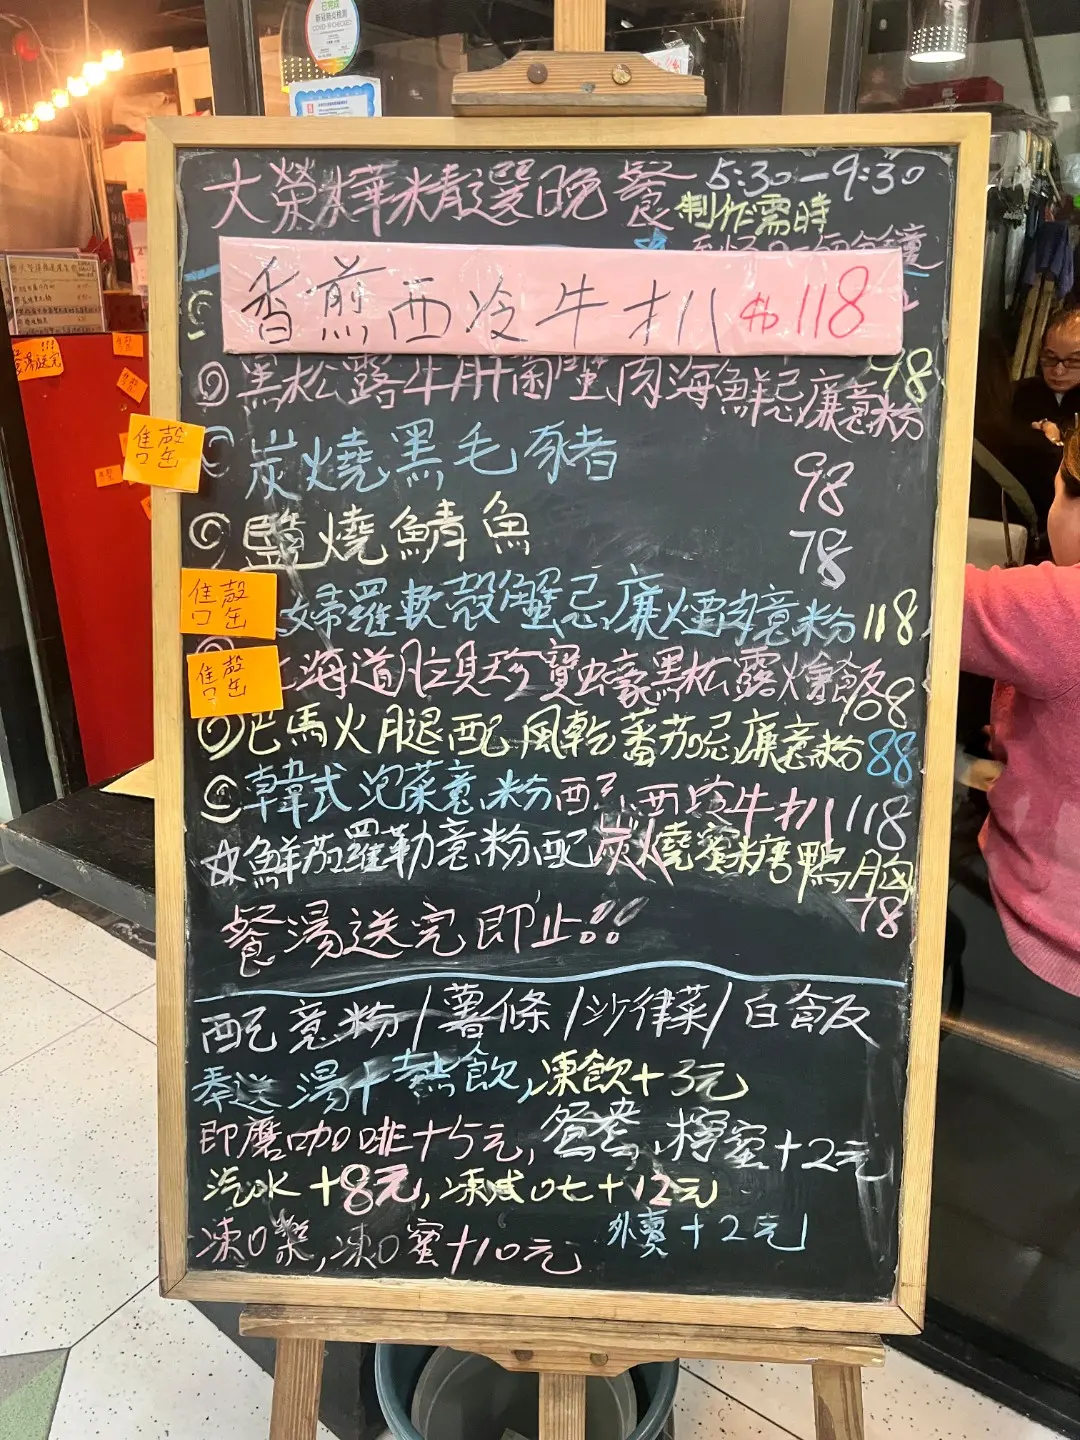 已完成
大榮華精選晚餐 5:30-9:30
制作需時
香煎西冷牛扒 $118
黑松露牛肝菌蟹肉海鮮忌廉意粉 98
售罄
炭燒黑毛豬 98
鹽燒鯖魚 78
售罄
軟殼蟹忌廉煙肉意粉 118
售罄
北海道帶子珍寶蚝黑松露燴飯 108
巴馬火腿配風乾蕃茄忌廉意粉 88
韓式泡菜意粉配西冷牛扒 118
☆鮮茄羅勒意粉配炭燒蜜糖鴨胸 78
餐湯送完即止!!
配意粉/薯條/沙律菜/白飯
奉送湯+熱飲,凍飲+3元
即磨咖啡+5元,鴛鴦,檸蜜+2元
汽水+8元,凍咸07+12元
凍0楽,凍0蜜+10元
外賣+2元
湯送完
售罄